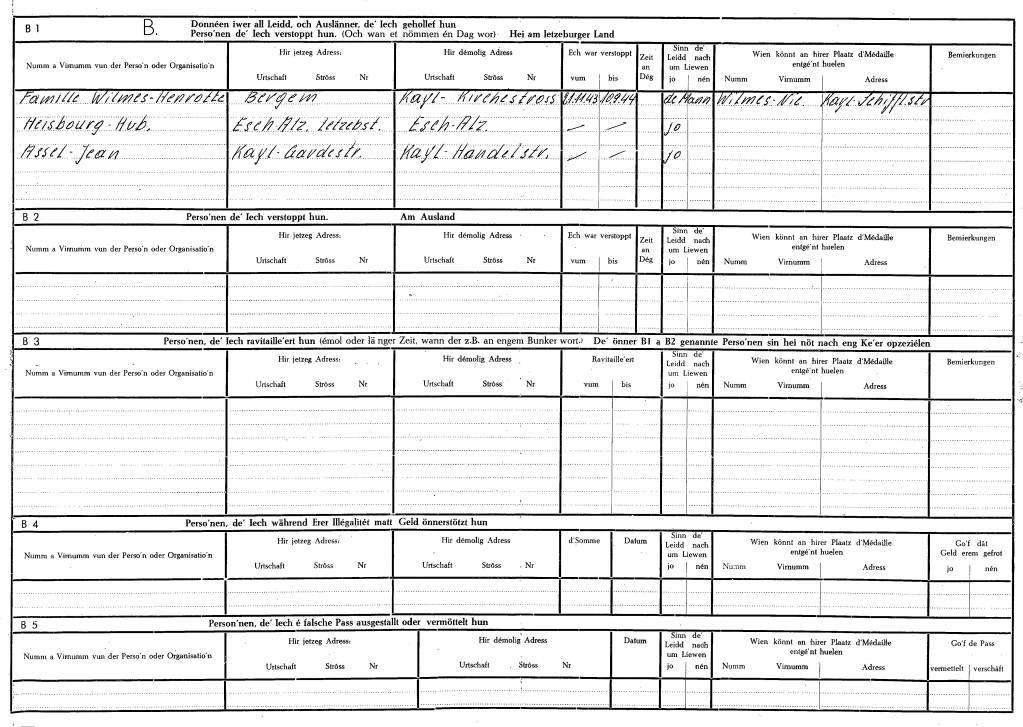 B 1 B. Donnéen iwer all Leidd, och Auslänner, de' Iech gehollef hun
Perso'nen de' Iech verstoppt hun. (Och wan et nömmen én Dag wor) Hei am letzeburger Land
Numm a Virnumm vun der Perso'n oder Organisatio'n
Hir jetzeg Adress:
Urtschaft Ströss Nr
Hir démolig Adress
Urtschaft Ströss Nr
Ech war verstoppt
vum bis
Zeit
an
Dég
Sinn de'
Leidd nach
um Liewen
jo nén
Wien könnt an hirer Plaatz d'Médaille
entgé'nt huelen
Numm Virnumm Adress
Bemierkungen
Famille Wilmes-Henrotte Bergem Kayl- Kirchestross 21.11.43 10.9.44 de Mann Wilmes-Nic. Kayl-Schifflstr
Heisbourg-Hub. Esch Alz. Letzebst. Esch-Alz. — — jo
Assel-Jean Kayl-Gardestr. Kayl-Handelstr. — — jo
B 2 Perso'nen de' Iech verstoppt hun. Am Ausland
Numm a Virnumm vun der Perso'n oder Organisatio'n
Hir jetzeg Adress:
Urtschaft Ströss Nr
Hir démolig Adress
Urtschaft Ströss Nr
Ech war verstoppt
vum bis
Zeit
an
Dég
Sinn de'
Leidd nach
um Liewen
jo nén
Wien könnt an hirer Plaatz d'Médaille
entgé'nt huelen
Numm Virnumm Adress
Bemierkungen
B 3 Perso'nen, de' Iech ravitaille'ert hun (émol oder länger Zeit, wann der z.B. an engem Bunker wort.) De' önner B1 a B2 genannte Perso'nen sin hei nöt nach eng Ke'er opzeziélen
Numm a Virnumm vun der Perso'n oder Organisatio'n
Hir jetzeg Adress:
Urtschaft Ströss Nr
Hir démolig Adress
Urtschaft Ströss Nr
Ravitaille'ert
vum bis
Sinn de'
Leidd nach
um Liewen
jo nén
Wien könnt an hirer Plaatz d'Médaille
entgé'nt huelen
Numm Virnumm Adress
Bemierkungen
B 4 Perso'nen, de' Iech während Erer Illégalitét matt Geld önnerstötzt hun
Numm a Virnumm vun der Perso'n oder Organisatio'n
Hir jetzeg Adress:
Urtschaft Ströss Nr
Hir démolig Adress
Urtschaft Ströss Nr
d'Somme
Datum
Sinn de'
Leidd nach
um Liewen
jo nén
Wien könnt an hirer Plaatz d'Médaille
entgé'nt huelen
Numm Virnumm Adress
Go'f dât
Geld erem gefrot
jo nén
B 5 Perso'nen, de' Iech é falsche Pass ausgestallt oder vermöttelt hun
Numm a Virnumm vun der Perso'n oder Organisatio'n
Hir jetzeg Adress:
Urtschaft Ströss Nr
Hir démolig Adress
Urtschaft Ströss Nr
Datum
Sinn de'
Leidd nach
um Liewen
jo nén
Wien könnt an hirer Plaatz d'Médaille
entgé'nt huelen
Numm Virnumm Adress
Go'f de Pass
vermettelt verschäft